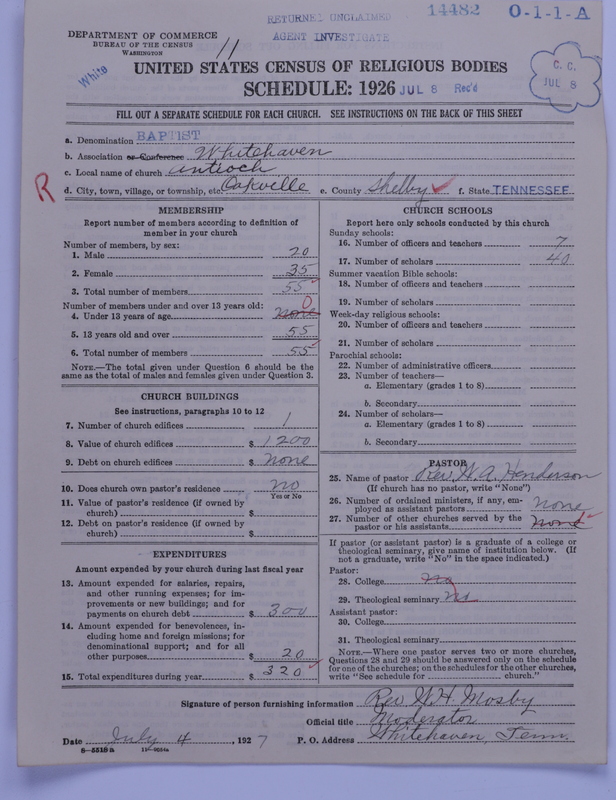 RETURNED UNCLAIMED
AGENT INVESTIGATE
14482 O-1-1-A
DEPARTMENT OF COMMERCE
BUREAU OF THE CENSUS
WASHINGTON
11
White
UNITED STATES CENSUS OF RELIGIOUS BODIES
SCHEDULE: 1926 JUL 8 Rec'd
C. C.
JUL 8
FILL OUT A SEPARATE SCHEDULE FOR EACH CHURCH. SEE INSTRUCTIONS ON THE BACK OF THIS SHEET
a. Denomination BAPTIST
b. Association or Conference Whitehaven
c. Local name of church Antioch
R
d. City, town, village, or township, etc. Oakville e. County Shelby f. State TENNESSEE
MEMBERSHIP
Report number of members according to definition of
member in your church
Number of members, by sex:
1. Male 20
2. Female 35
3. Total number of members 55
Number of members under and over 13 years old:
0
4. Under 13 years of age none
5. 13 years old and over 55
6. Total number of members 55
NOTE.—The total given under Question 6 should be the
same as the total of males and females given under Question 3.
CHURCH BUILDINGS
See instructions, paragraphs 10 to 12
7. Number of church edifices 1
8. Value of church edifices $ 1200
9. Debt on church edifices $ none
10. Does church own pastor's residence no
Yes or No
11. Value of pastor's residence (if owned by
church) $
12. Debt on pastor's residence (if owned by
church) $
EXPENDITURES
Amount expended by your church during last fiscal year
13. Amount expended for salaries, repairs,
and other running expenses; for im-
provements or new buildings; and for
payments on church debt $ 300
14. Amount expended for benevolences, in-
cluding home and foreign missions; for
denominational support; and for all
other purposes $ 20
15. Total expenditures during year $ 320
CHURCH SCHOOLS
Report here only schools conducted by this church
Sunday schools:
16. Number of officers and teachers 7
17. Number of scholars 40
Summer vacation Bible schools:
18. Number of officers and teachers
19. Number of scholars
Week-day religious schools:
20. Number of officers and teachers
21. Number of scholars
Parochial schools:
22. Number of administrative officers
23. Number of teachers—
a. Elementary (grades 1 to 8)
b. Secondary
24. Number of scholars—
a. Elementary (grades 1 to 8)
b. Secondary
PASTOR
25. Name of pastor Rev. H. A. Henderson
(If church has no pastor, write "None")
26. Number of ordained ministers, if any, em-
ployed as assistant pastors none
27. Number of other churches served by the
pastor or his assistants none
If pastor (or assistant pastor) is a graduate of a college or
theological seminary, give name of institution below. (If
not a graduate, write "No" in the space indicated.)
Pastor:
28. College no
29. Theological seminary no
Assistant pastor:
30. College
31. Theological seminary
NOTE.—Where one pastor serves two or more churches,
Questions 28 and 29 should be answered only on the schedule
for one of the churches; on the schedules for the other churches,
write "See schedule for church."
Signature of person furnishing information Rev W. H. Mosby
Official title Moderator
Date July 4, 1927 P. O. Address Whitehaven, Tenn.
8-5518a